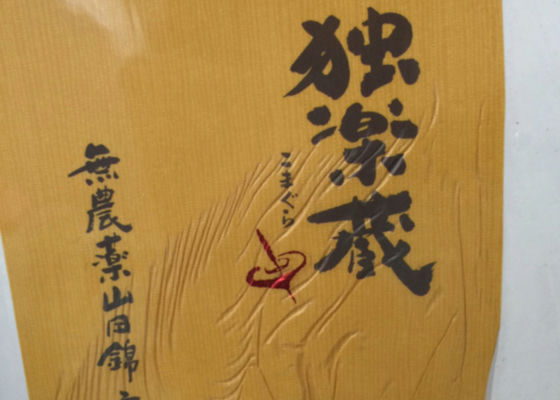 独楽蔵
こまぐら
無農薬山田錦